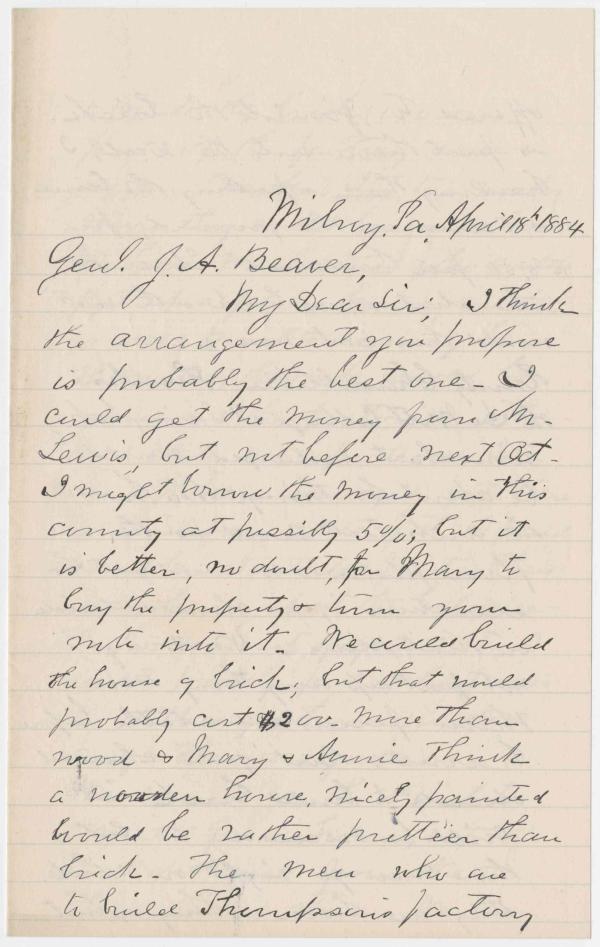 Milroy, Pa. April 18th 1884
Genl. J. A. Beaver,
My Dear Sir; I think
the arrangement you propose
is probably the best one - I
could get the money from Mr.
Lewis, but not before next Oct -
I might borrow the money in this
county at possibly 5%; but it
is better, no doubt, for Mary to
buy the property & turn your
note into it - We could build
the house of brick; but that would
probably cost $200 - more than
wood & Mary & Annie think
a wooden house, nicely painted
would be rather prettier than
brick - The men who are
to build Thompson's factory